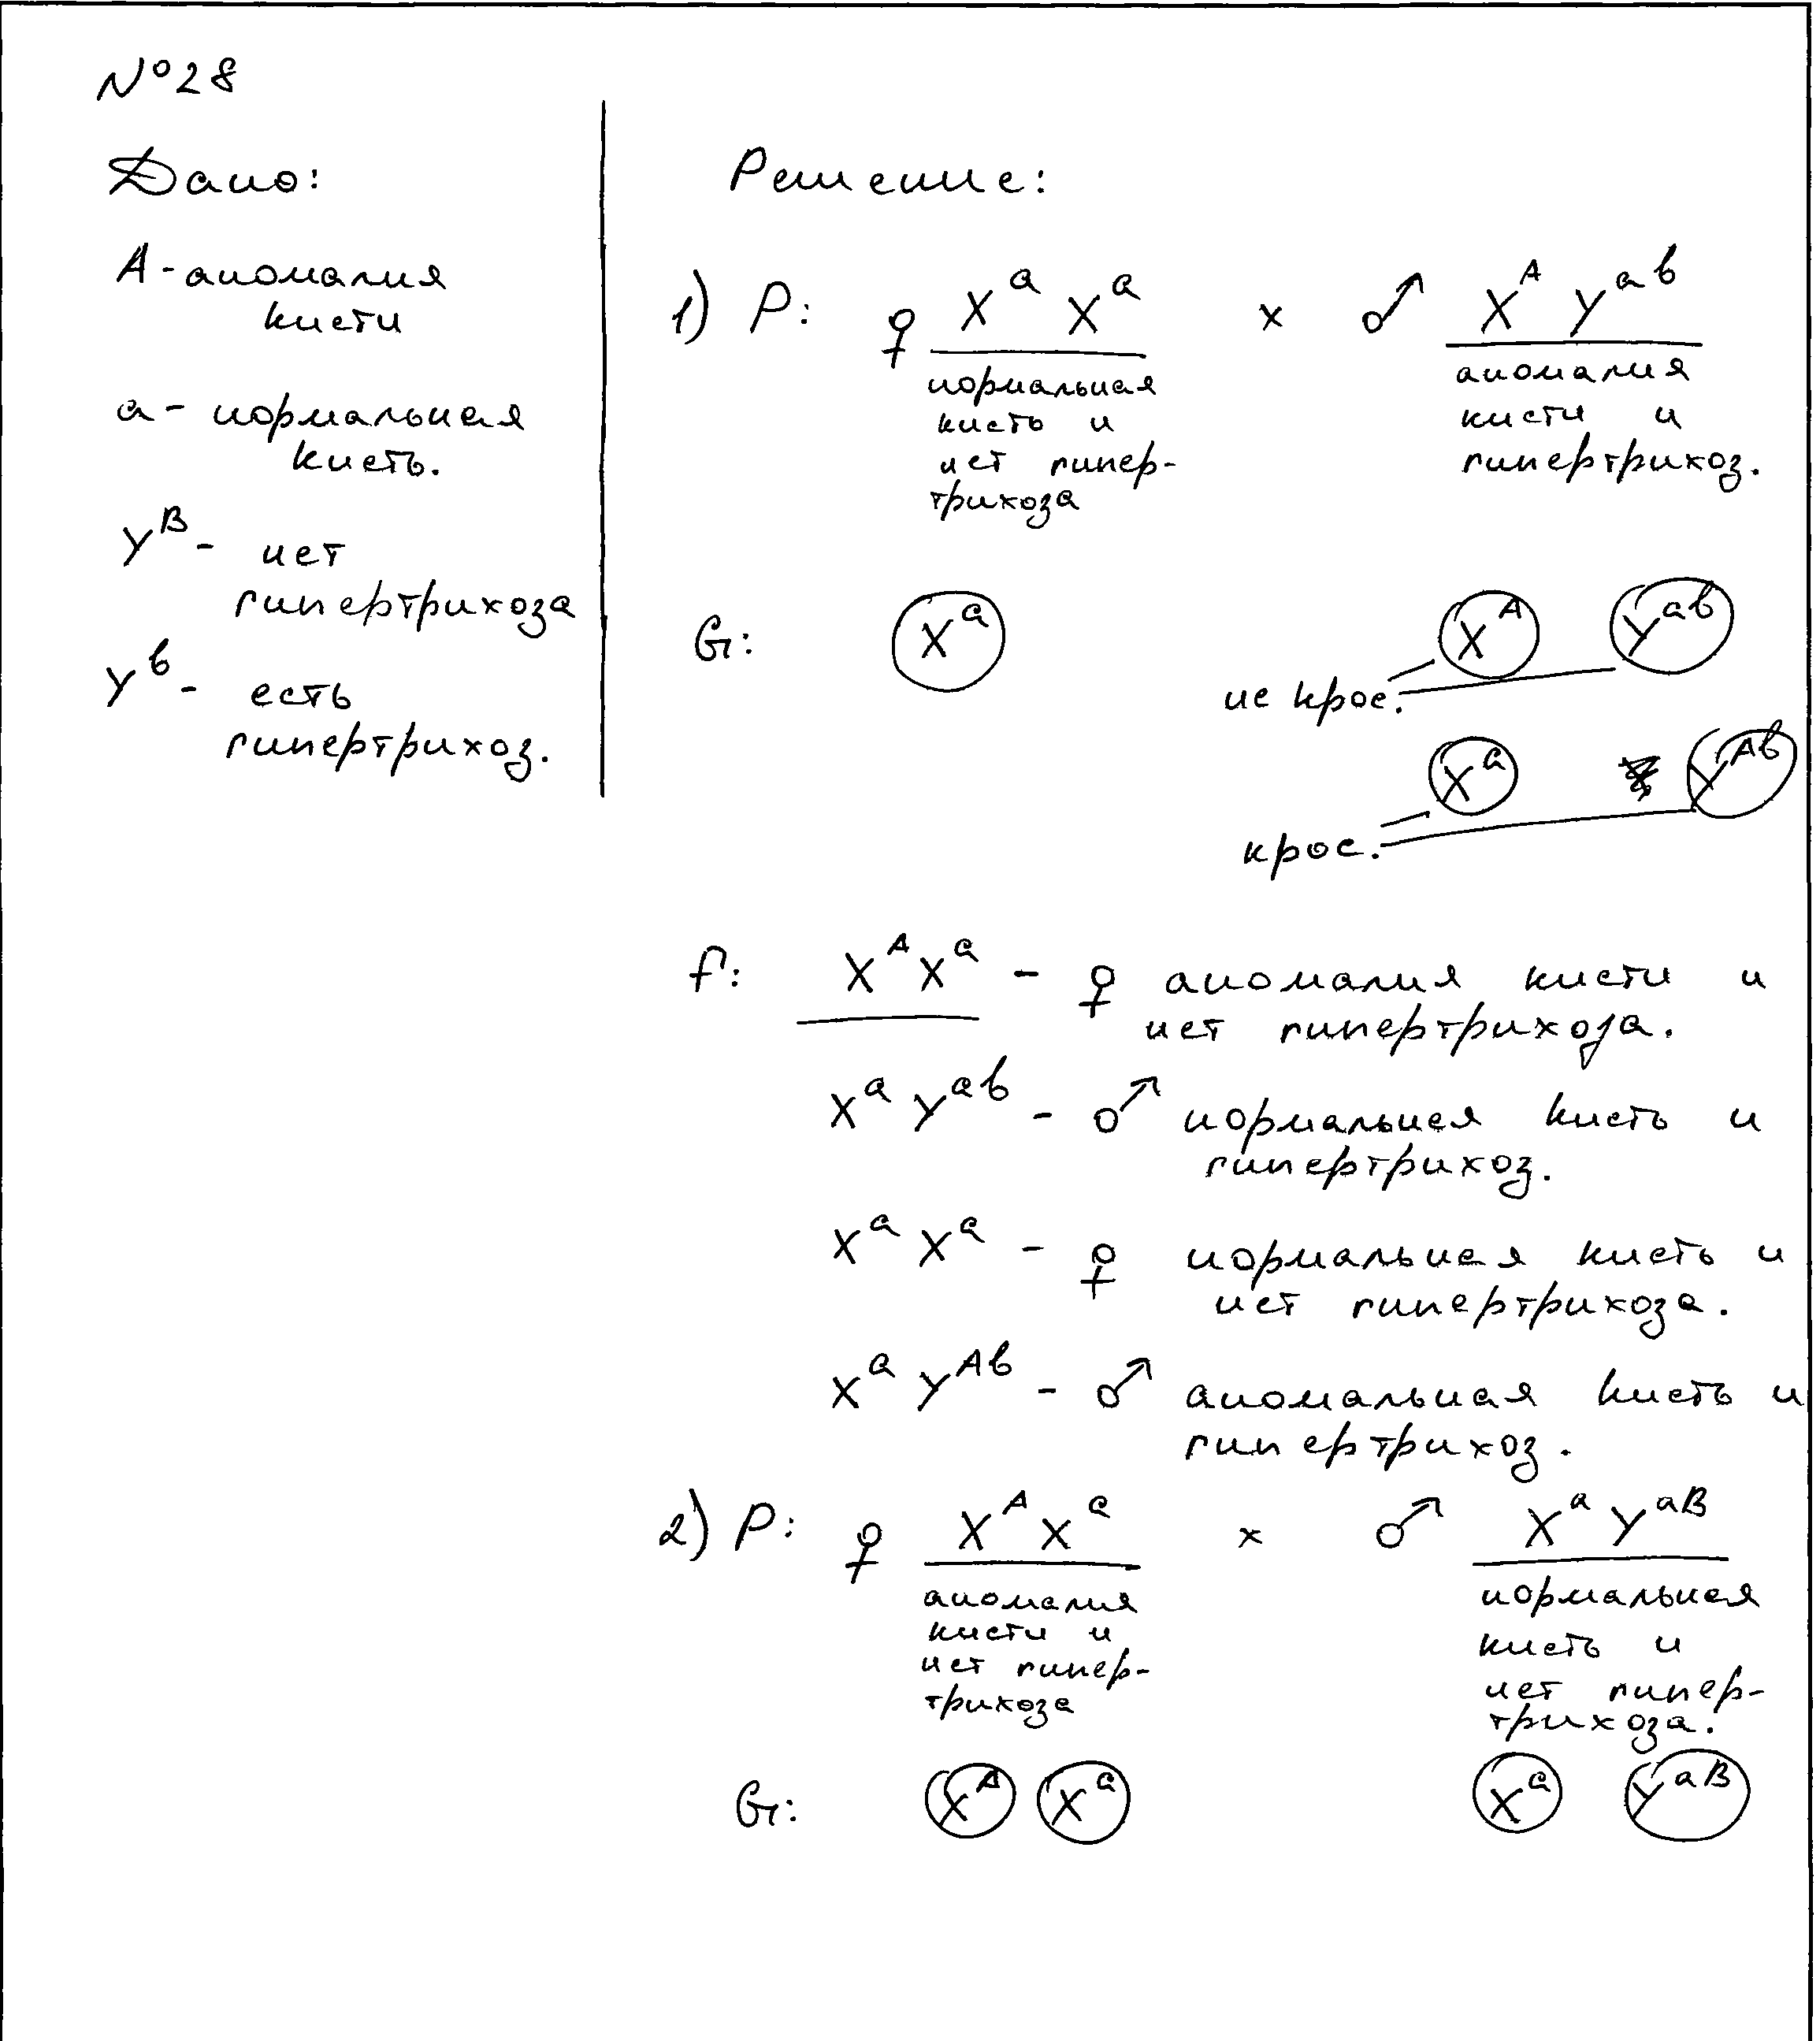 №28
Дано:
A - аномалия
кисти
a - нормальная
кисть.
Y^B - нет
гипертрихоза
Y^b - есть
гипертрихоз.
Решение:
1) P: ♀ X^a X^a x ♂ X^A Y^ab
нормальная
кисть и
нет гипер-
трихоза
аномалия
кисти и
гипертрихоз.
G: X^a X^A Y^ab
не крос.
X^a Y^Ab
крос.
F: X^A X^a - ♀ аномалия кисти и
нет гипертрихоза.
X^a Y^ab - ♂ нормальная кисть и
гипертрихоз.
X^a X^a - ♀ нормальная кисть и
нет гипертрихоза.
X^a Y^Ab - ♂ аномальная кисть и
гипертрихоз.
2) P: ♀ X^A X^a x ♂ X^a Y^aB
аномалия
кисти и
нет гипер-
трихоза
нормальная
кисть и
нет гипер-
трихоза.
G: X^A X^a X^a Y^aB